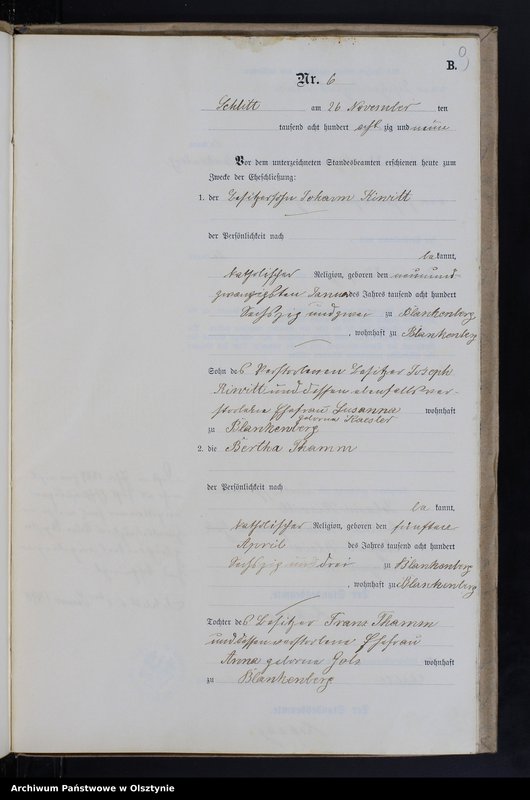 B.
9
Nr. 6
Schlitt am 26 November ten
tausend acht hundert acht zig und neun
Vor dem unterzeichneten Standesbeamten erschienen heute zum
Zwecke der Eheschließung:
1. der Besitzersohn Johann Kiwitt
der Persönlichkeit nach
be kannt,
katholischer Religion, geboren den neunund-
zwanzigsten Januar des Jahres tausend acht hundert
sechszig und zwei zu Blankenberg
, wohnhaft zu Blankenberg
Sohn des Verstorbenen Besitzer Joseph
Kiwitt und dessen ebenfalls ver-
storbene Ehefrau Susanna wohnhaft
geborne Kaesler
zu Blankenberg
2. die Bertha Thamm
der Persönlichkeit nach
be kannt,
katholischer Religion, geboren den fünften
April des Jahres tausend acht hundert
sechszig und drei zu Blankenberg
, wohnhaft zu Blankenberg
Tochter des Besitzer Franz Thamm
und dessen verstorbene Ehefrau
Anna geborne wohnhaft
zu Blankenberg
Archiwum Państwowe w Olsztynie